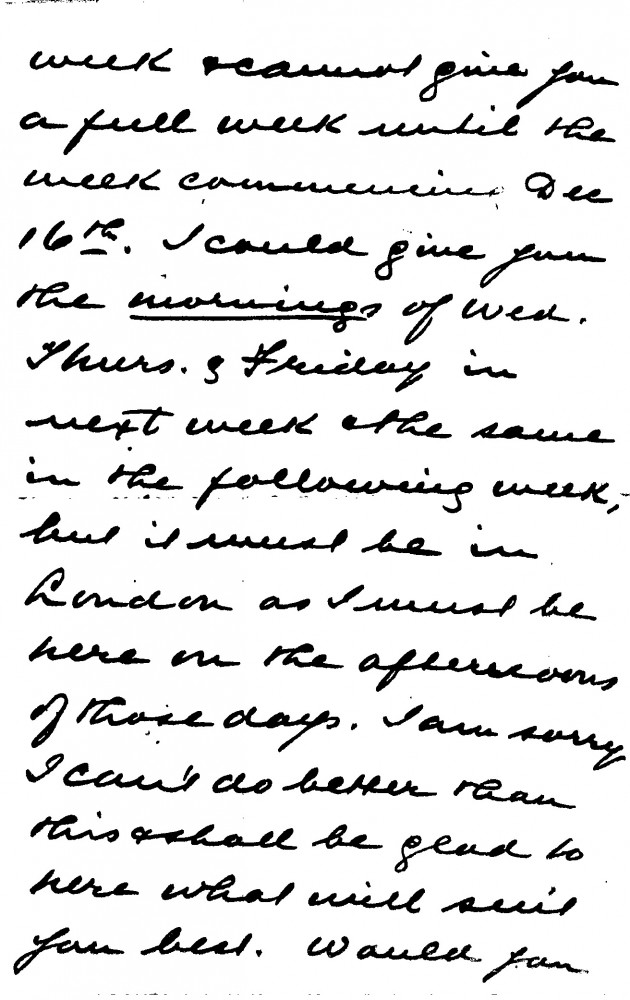 week & cannot give you
a full week until the
week commencing Dec
16th. I could give you
the mornings of Wed.
Thurs. & Friday in
next week & the same
in the following week,
but it must be in
London as I must be
here on the afternoons
of those days. I am sorry
I can't do better than
this & shall be glad to
here what will suit
you best. Would you